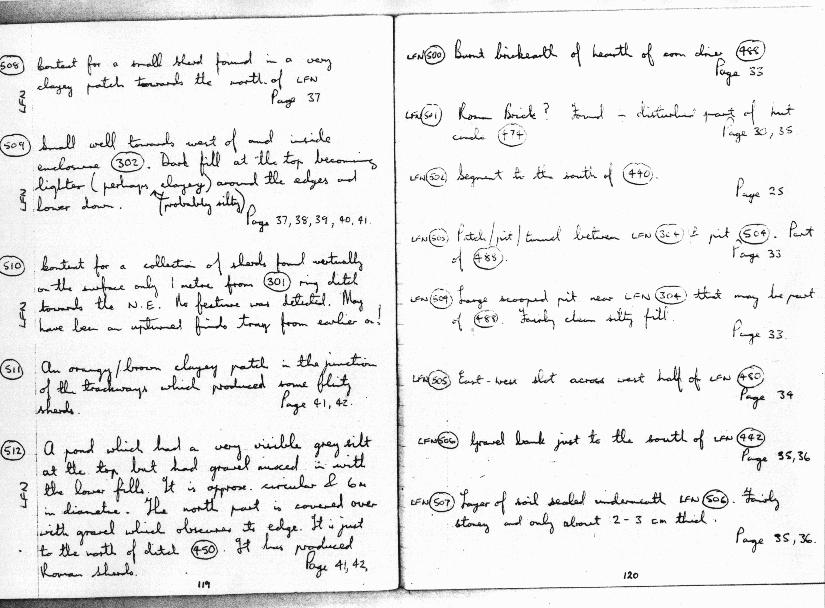 508 Context for a small sherd found in a very
LFN clayey patch towards the north of LFN
Page 37
509 Small well towards west of and inside
enclosure 302. Dark fill at the top becoming
LFN lighter (perhaps clayey) around the edges and
lower down. (probably silty)
Page 37, 38, 39, 40, 41.
510 Context for a collection of sherds found vertically
on the surface only 1 metre from 301 ring ditch
LFN towards the N.E. No feature was detected. May
have been an upturned finds tray from earlier on!
511 An orangy/brown clayey patch in the junction
of the trackways which produced some flinty
sherds. Page 41, 42.
512 A pond which had a very visible grey silt
at the top but had gravel mixed in with
LFN the lower fills. It is approx. circular & 6m
in diameter. The north part is covered over
with gravel which obscures its edge. It is just
to the north of ditch 450. It has produced
Roman sherds. Page 41, 42,
119
LFN 500 Burnt brickearth of hearth of corn drier 488
Page 33
LFN 501 Roman Brick? Found in disturbed part of hut
circle 474 Page 30, 35
LFN 502 Segment to the south of 440.
Page 25
LFN 503 Patch/pit/tunnel between LFN 304 & pit 504. Part
of 488. Page 33
LFN 504 Large scooped pit near LFN 304 that may be part
of 488. Fairly clean silty fill.
Page 33.
LFN 505 East-west slot across west half of LFN 480
Page 34
LFN 506 Gravel bank just to the south of LFN 442
Page 35, 36
LFN 507 Layer of soil sealed underneath LFN 506. Fairly
stoney and only about 2-3 cm thick.
Page 35, 36.
120